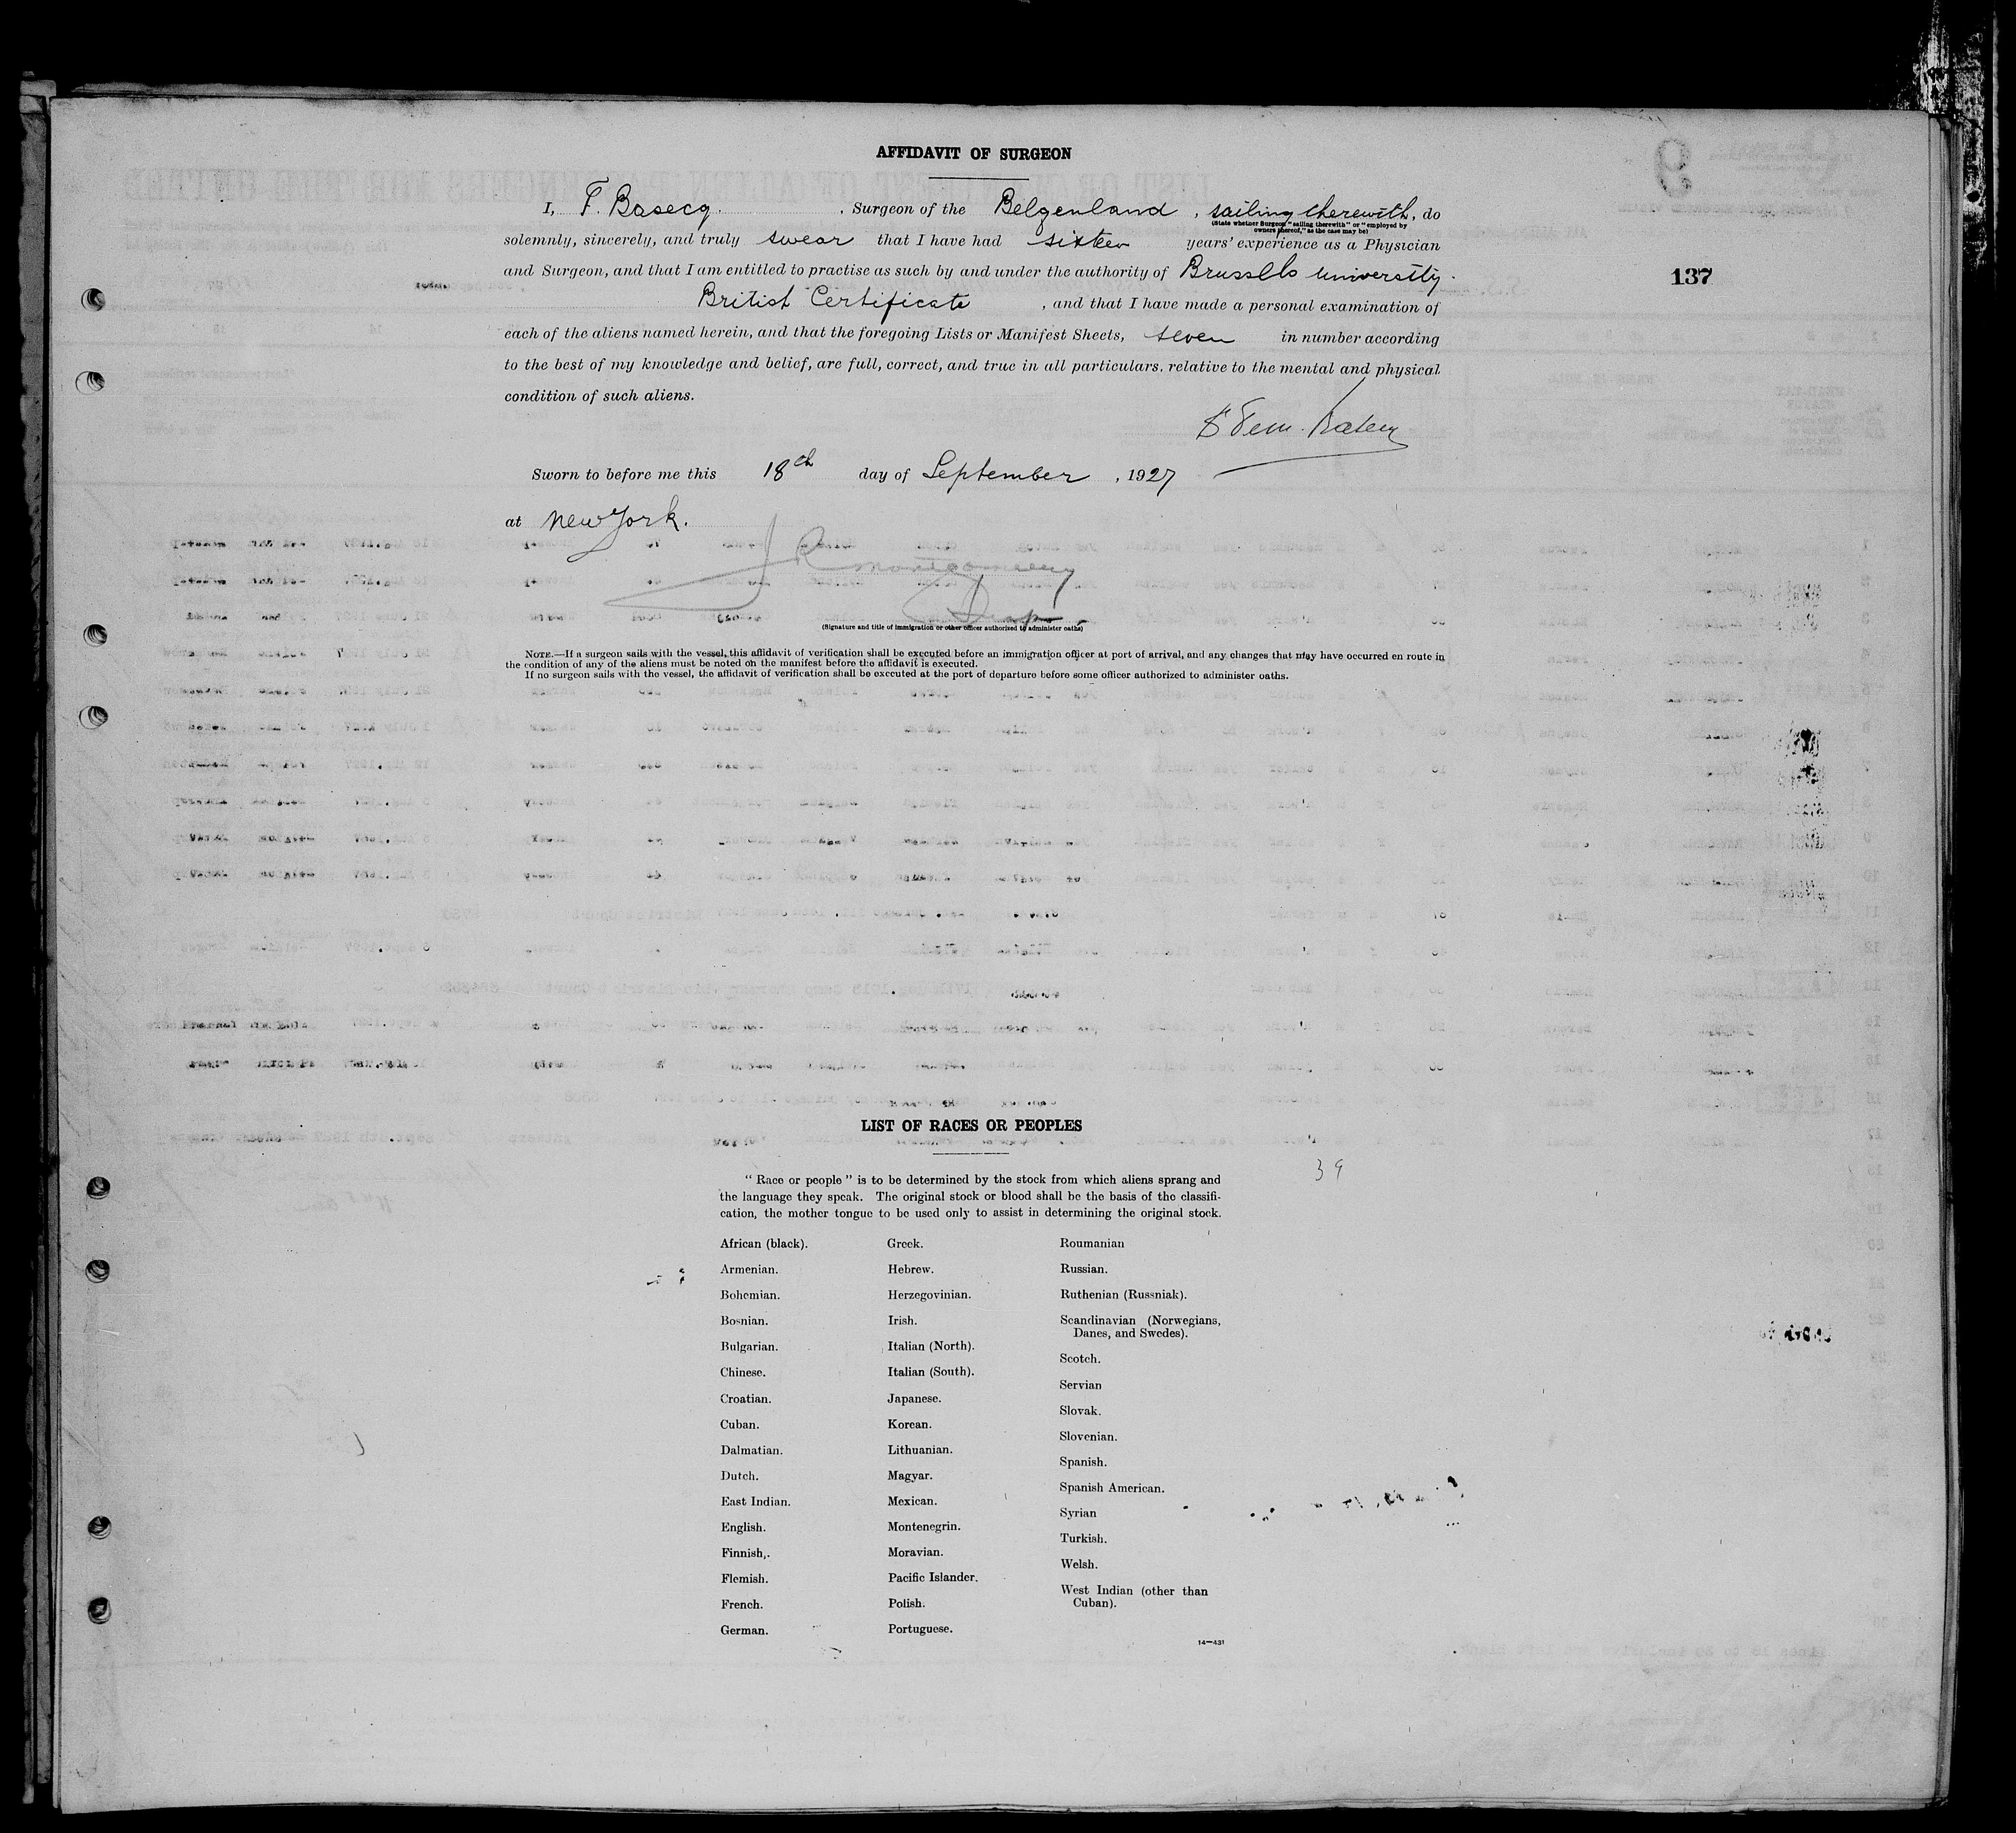 AFFIDAVIT OF SURGEON
I, F. Basecq. , Surgeon of the Belgenland , sailing therewith, do
(State whether Surgeon "sailing therewith" or "employed by
owners thereof," as the case may be)
solemnly, sincerely, and truly swear that I have had sixteen years' experience as a Physician
and Surgeon, and that I am entitled to practise as such by and under the authority of Brussels University.
137
British Certificate , and that I have made a personal examination of
each of the aliens named herein, and that the foregoing Lists or Manifest Sheets, seven in number according
to the best of my knowledge and belief, are full, correct, and true in all particulars, relative to the mental and physical
condition of such aliens.
Sworn to before me this 18th day of September , 1927
at New York.
J R Montgomery
(Signature and title of immigration or other officer authorized to administer oaths)
NOTE.—If a surgeon sails with the vessel, this affidavit of verification shall be executed before an immigration officer at port of arrival, and any changes that may have occurred en route in
the condition of any of the aliens must be noted on the manifest before the affidavit is executed.
If no surgeon sails with the vessel, the affidavit of verification shall be executed at the port of departure before some officer authorized to administer oaths.
LIST OF RACES OR PEOPLES
39
"Race or people" is to be determined by the stock from which aliens sprang and
the language they speak. The original stock or blood shall be the basis of the classifi-
cation, the mother tongue to be used only to assist in determining the original stock.
African (black).
Armenian.
Bohemian.
Bosnian.
Bulgarian.
Chinese.
Croatian.
Cuban.
Dalmatian.
Dutch.
East Indian.
English.
Finnish,.
Flemish.
French.
German.
Greek.
Hebrew.
Herzegovinian.
Irish.
Italian (North).
Italian (South).
Japanese.
Korean.
Lithuanian.
Magyar.
Mexican.
Montenegrin.
Moravian.
Pacific Islander.
Polish.
Portuguese.
Roumanian
Russian.
Ruthenian (Russniak).
Scandinavian (Norwegians,
Danes, and Swedes).
Scotch.
Servian
Slovak.
Slovenian.
Spanish.
Spanish American.
Syrian
Turkish.
Welsh.
West Indian (other than
Cuban).
14—431